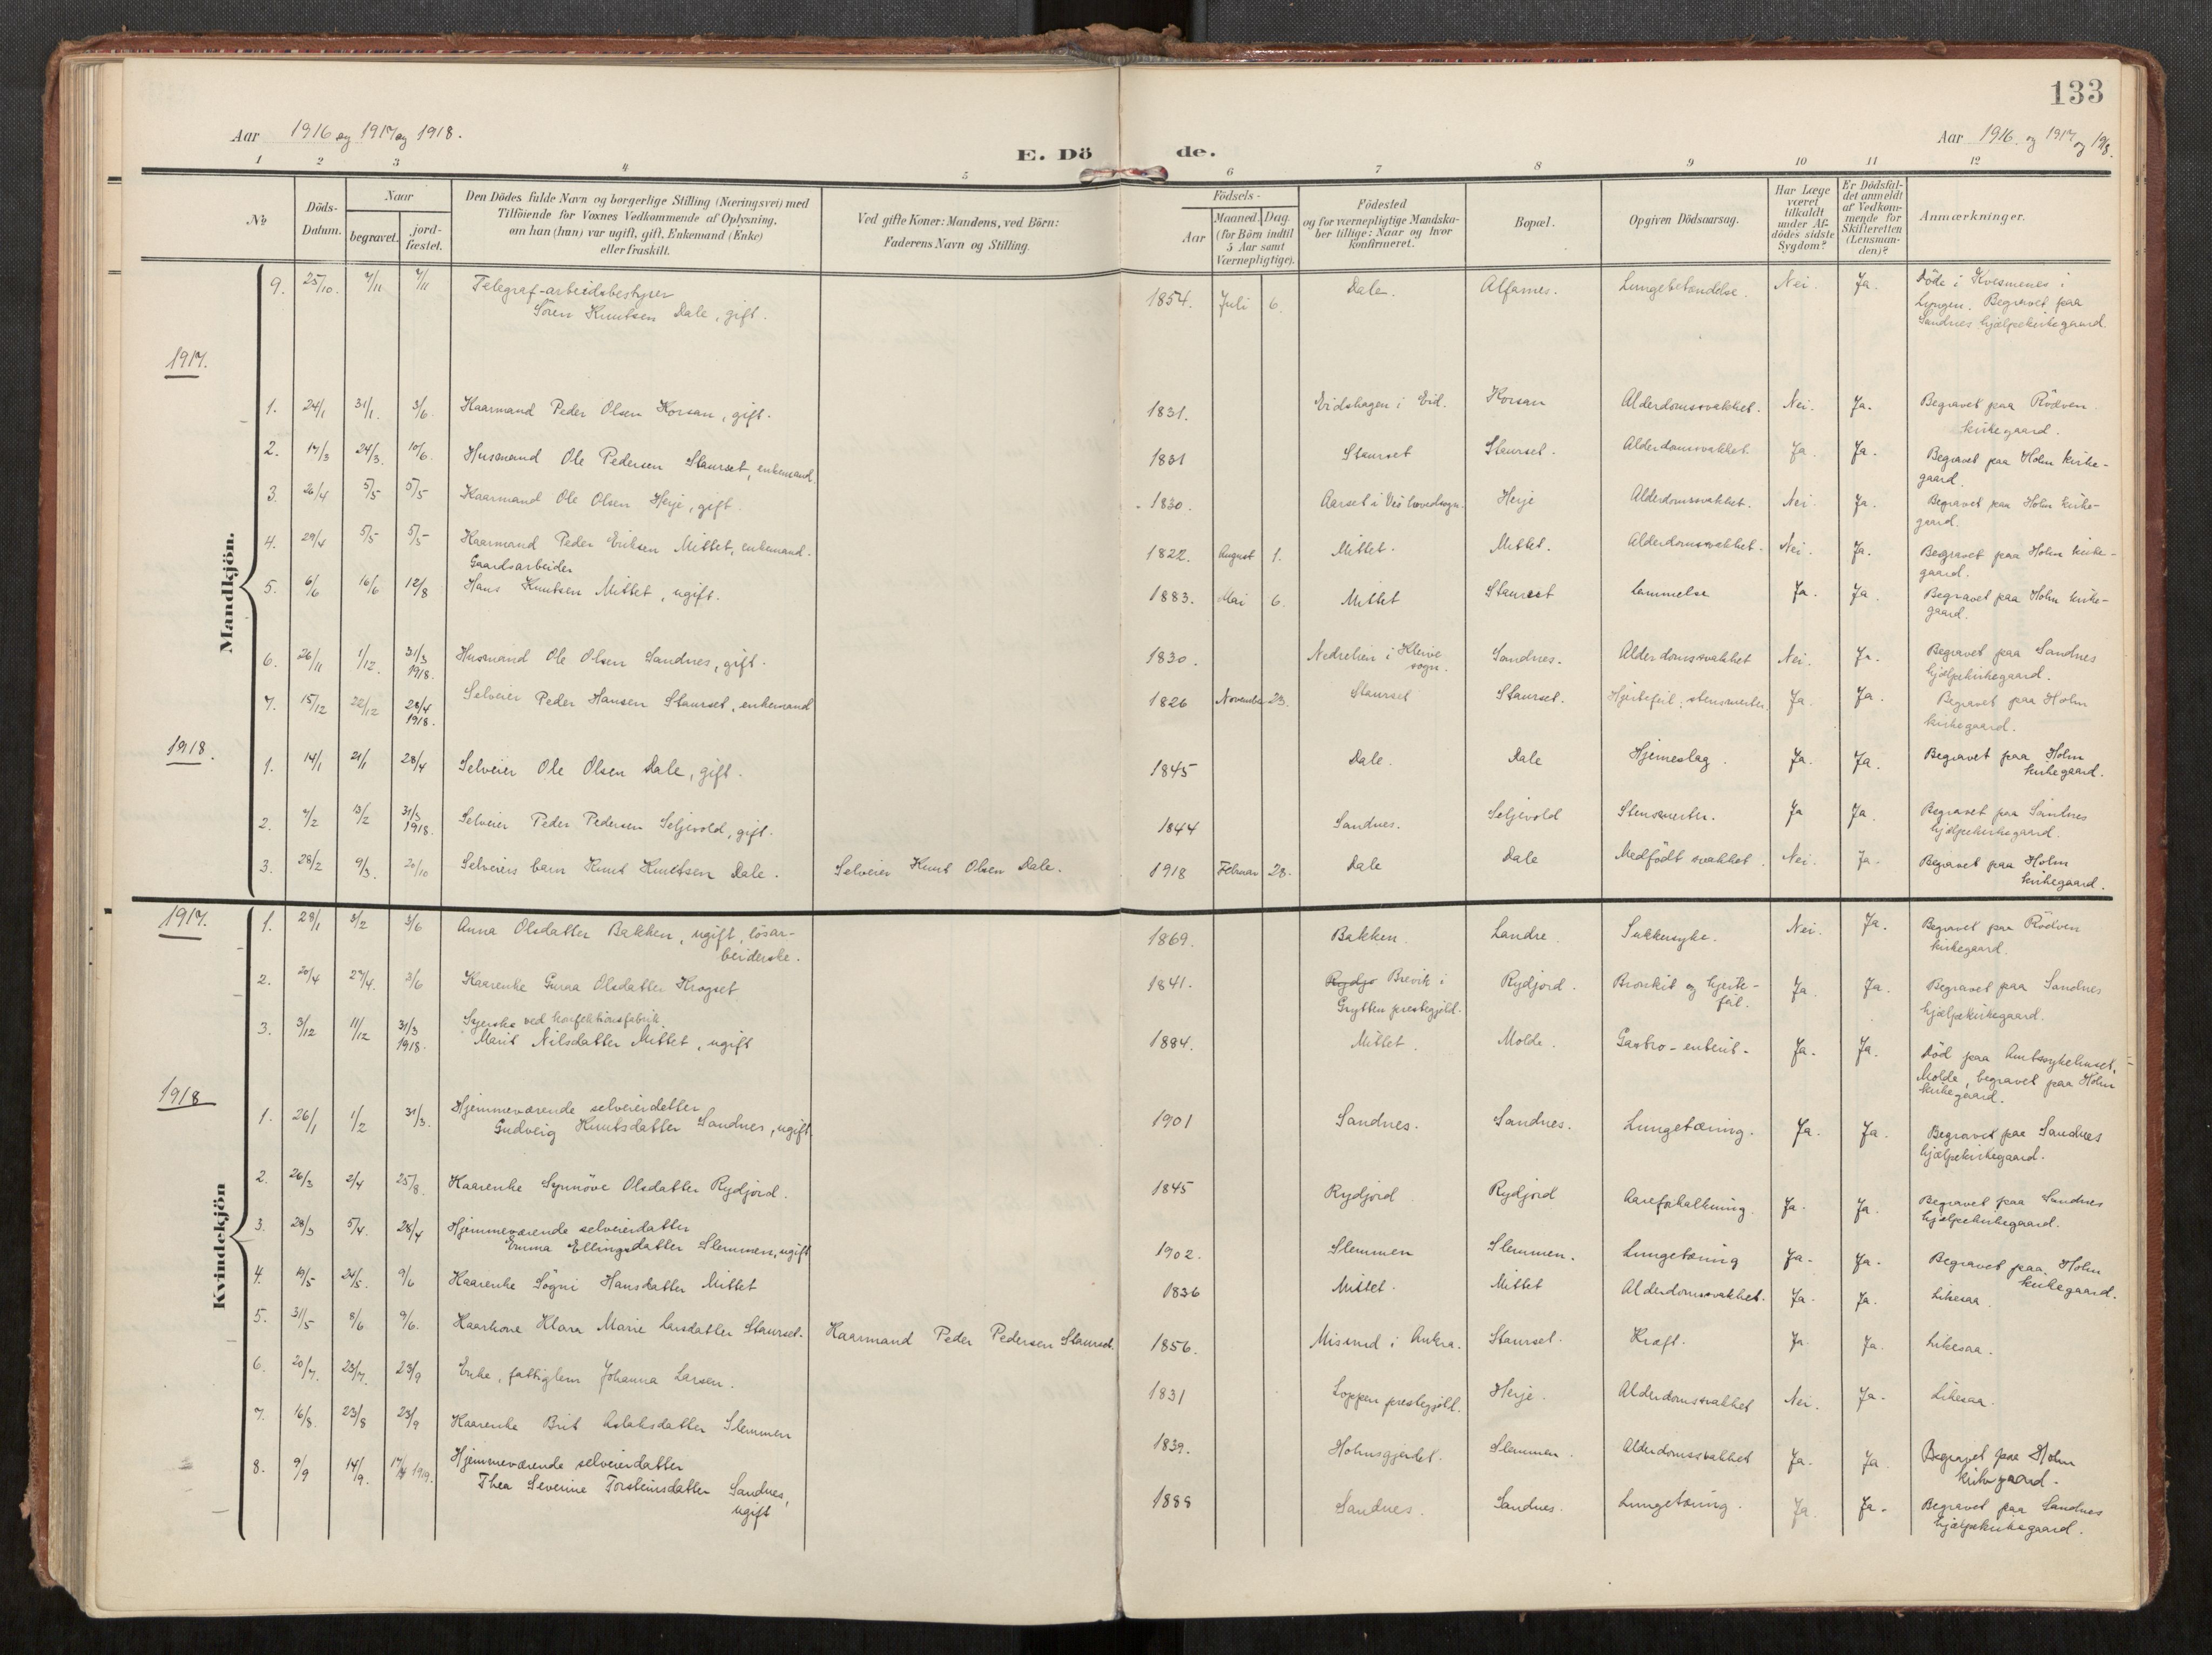 133
Aar 1916 og 1917 og 1918.
Aar 1916 og 1917 og 1918.
E. Dö de.
1 2 3 4 5 6 7 8 9 10 11 12
No
Döds-Datum.
Naar
begravet.
jord-fæstet.
Den Dödes fulde Navn og borgerlige Stilling (Næringsvei) med
Tilföiende for Voxnes Vedkommende af Oplysning,
om han (hun) var ugift, gift, Enkemand (Enke)
eller fraskilt.
Ved gifte Koner: Mandens, ved Börn:
Faderens Navn og Stilling.
Födsels-
Aar
Maaned. Dag.
(for Börn indtil
5 Aar samt
Værnepligtige).
Födested
og for værnepligtige Mandska-
ber tillige: Naar og hvor
konfirmeret.
Bopæl.
Opgiven Dödsaarsag.
Har Læge
været
tilkaldt
under Af-
dödes sidste
Sygdom?
Er Dödsfal-
det anmeldt
af Vedkom-
mende for
Skifteretten
(Lensman-
den)?
Anmærkninger.
Mandkjön.
9. 25/10. 7/11 7/11 Telegraf-arbeidsbestyrer
Sören Knutsen Dale, gift. 1854. Juli 6. Dale. Alfarnes. Lungebetændelse. Nei. Ja. Döde i Kvesmenes i
Lyngen. Begravet paa
Sandnes hjælpekirkegaard.
1917.
1. 24/1 31/1. 3/6. Kaarmand Peder Olsen Korsan, gift. 1831. Eidshagen i Eid. Korsan Alderdomssvakhet. Nei. Ja. Begravet paa Rödven
kirkegaard.
2. 17/3 24/3. 10/6. Husmand Ole Pedersen Staurset, enkemand. 1831 Staurset Staurset. Alderdomssvakhet Ja. Ja. Begravet paa Holm kirke-
gaard.
3. 26/4 5/5 5/5 Kaarmand Ole Olsen Herje, gift. 1830. Aarset i Vestö hovedsogn. Herje Alderdomssvakhet. Nei. Ja. Begravet paa Holm kirke-
gaard.
4. 29/4 5/5 5/5 Kaarmand Peder Eriksen Mittet, enkemand. 1822. August 1. Mittet. Mittet. Alderdomssvakhet. Nei. Ja. Begravet paa Holm kirke-
gaard.
Gaardsarbeider
5. 6/6 16/6 12/8 Hans Knutsen Mittet, ugift. 1883. Mai 6. Mittet Staurset Lammelse Ja. Ja. Begravet paa Holm kirke-
gaard.
6. 26/11 1/12. 31/3 1918. Husmand Ole Olsen Sandnes, gift. 1830. Nedrelien i Kleive
sogn. Sandnes. Alderdomssvakhet Nei. Ja. Begravet paa Sandnes
hjælpekirkegaard.
7. 15/12 22/12 28/4 1918. Selveier Peder Hansen Staurset, enkemand 1826 November 23. Staurset Staurset. Hjertefeil, stensmerter. Ja. Ja. Begravet paa Holm
kirkegaard.
1918.
1. 14/1 21/1 28/4 Selveier Ole Olsen Dale, gift. 1845 Dale. Dale Hjerneslag. Ja. Ja. Begravet paa Holm
kirkegaard.
2. 7/2 13/2 31/3 1918. Selveier Peder Pedersen Seljevold, gift. 1844 Sandnes. Seljevold Stensmerter. Ja Ja. Begravet paa Sandnes
hjælpekirkegaard.
3. 28/2 9/3. 20/10 Selveiers barn Knut Knutsen Dale. Selveier Knut Olsen Dale. 1918 Februar 28. Dale Dale Medfödt svakhet. Nei. Ja. Begravet paa Holm
kirkegaard.
Kvindekjön
1917.
1. 28/1 3/2 3/6 Anna Olsdatter Bakken, ugift, lösar-
beiderske. 1869. Bakken. Landre. Sukkersyke. Nei. Ja. Begravet paa Rödven
kirkegaard.
2. 20/4 27/4. 3/6 Kaarenke Guraa Olsdatter Krogset 1841. Rydjo Brevik i
Grytten prestegjeld. Rydjord. Bronkit og hjerte-
feil. Ja. Ja. Begravet paa Sandnes
hjælpekirkegaard.
3. 3/12 11/12 31/3 1918. Syerske ved konfektionsfabrik
Marit Nilsdatter Mittet, ugift 1884. Mittet. Molde. Gastro-enterit. Ja. Ja. Död paa Amtssykehuset,
Molde, begravet paa Holm
kirkegaard.
1918
1. 26/1 1/2 31/3. Hjemmeværende selveierdatter
Gudveig Knutsdatter Sandnes, ugift. 1901 Sandnes. Sandnes. Lungetæring. Ja. Ja. Begravet paa Sandnes
hjælpekirkegaard.
2. 26/3 2/4 25/8. Kaarenke Synnöve Olsdatter Rydjord. 1845 Rydjord Rydjord Aareforkalkning. Ja. Ja. Begravet paa Sandnes
hjælpekirkegaard.
3. 28/3 5/4. 28/4 Hjemmeværende selveierdatter
Emma Ellingsdatter Slemmen, ugift 1902. Slemmen Slemmen. Lungetæring Ja. Ja. Begravet paa Holm
kirkegaard.
4. 19/5 24/5. 9/6 Kaarenke Sögni Hansdatter Mittet 1836 Mittet. Mittet Alderdomssvakhet. Ja. Ja. Likesaa.
5. 31/5 8/6 9/6. Kaarkone Klara Marie Larsdatter Staurset. Kaarmand Peder Pedersen Staurset. 1856. Misund i Aukra. Staurset. Kræft. Ja Ja. Likesaa.
6. 20/7. 23/7. 23/9 Enke, fattiglem Johanna Larsen. 1831 Loppen prestegjeld. Herje. Alderdomssvakhet Nei. Ja. Likesaa.
7. 16/8. 23/8 23/9 Kaarenke Brit Aslaksdatter Slemmen 1839. Holmsgjerdet. Slemmen. Alderdomssvakhet Ja. Ja Begravet paa Holm
kirkegaard.
8. 9/9 14/9. 17/4 1919. Hjemmeværende selveierdatter
Thea Severine Torsteinsdatter Sandnes,
ugift 1888 Sandnes. Sandnes. Lungetæring. Ja. Ja. Begravet paa Sandnes
hjælpekirkegaard.